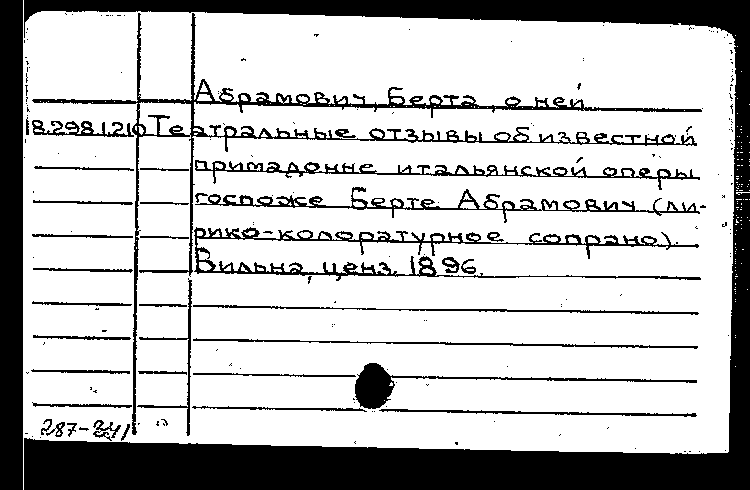 Абрамович, Берта, о ней
18.298.1.210 Театральные отзывы об известной
примадонне итальянской оперы
госпоже Берте Абрамович (ли-
рико-колоратурное сопрано).
Вильна, ценз. 1896.
287-241